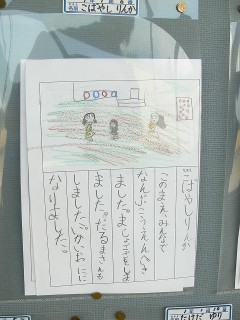 こばやし りんか
こばやしりんか
このまえ、みんなで
なんぶこうえんへき
ました。
ました。だるまさんも
しました。ごかいおにに
なりました。
たけだ ゆり